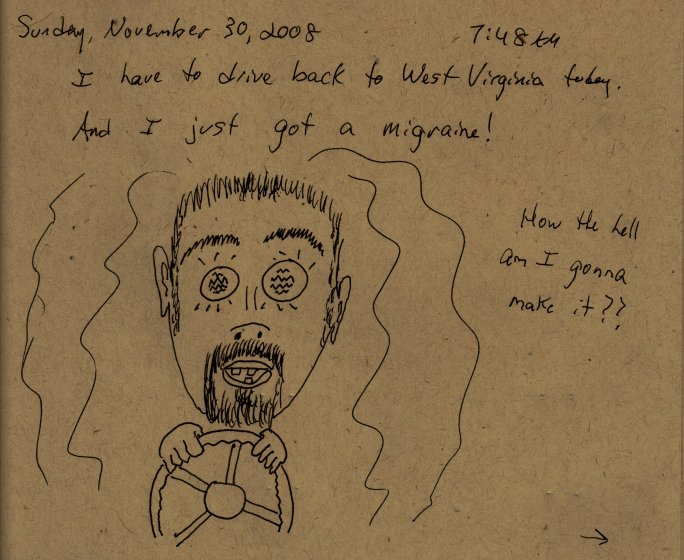 Sunday, November 30, 2008 7:48 AM
I have to drive back to West Virginia today.
And I just got a migraine!
How the hell
am I gonna
make it??